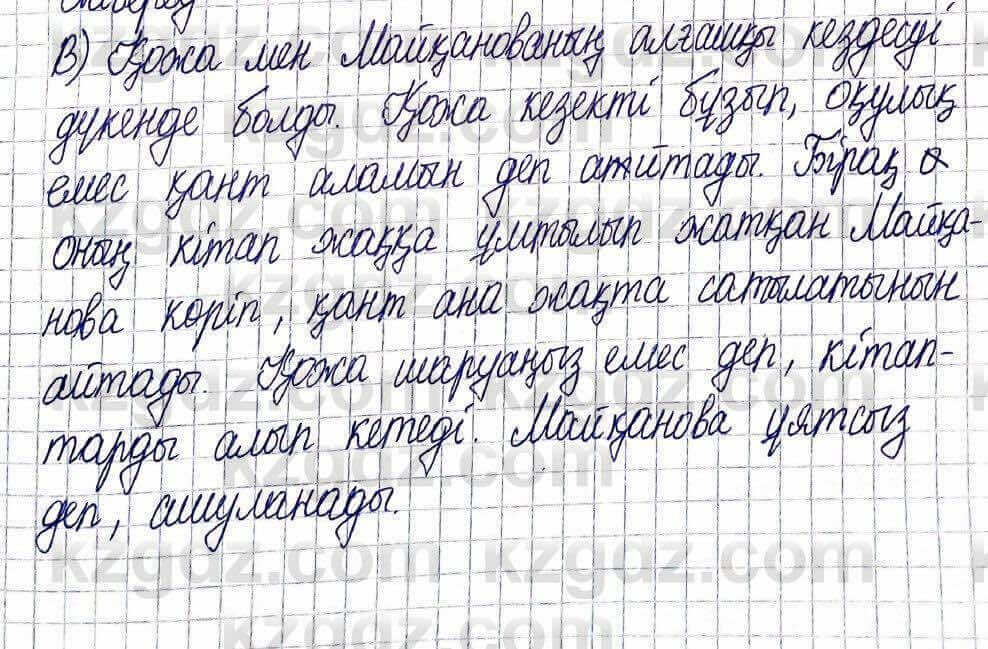 В) Қожа мен Майқанованың алғашқы кездесуі
дүкенде болды. Қожа кезекті бұзып, оқулық
емес қант аламын деп айтады. Бірақ
оның кітап жаққа ұмтылып жатқан Майқа-
нова көріп, қант ана жақта сатылатынын
айтады. Қожа шаруаңыз емес деп, кітап-
тарды алып кетеді. Майқанова ұятсыз
деп, ашуланады.
kzgdz.com kzgdz.com